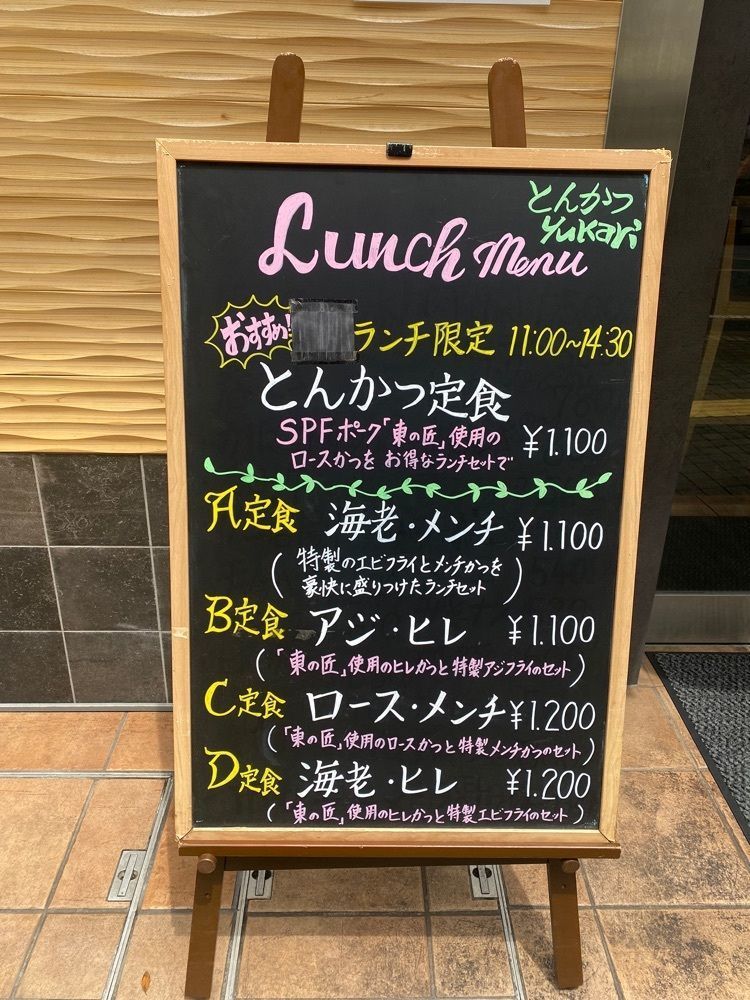 とんかつ
Yukari
Lunch Menu
おすすめ! ランチ限定 11:00~14:30
とんかつ定食
SPFポーク「東の匠」使用の
ロースかつを お得なランチセットで
¥1.100
A定食 海老・メンチ ¥1.100
(特製のエビフライとメンチかつを
豪快に盛りつけたランチセット)
B定食 アジ・ヒレ ¥1.100
(「東の匠」使用のヒレかつと特製アジフライのセット)
C定食 ロース・メンチ ¥1.200
(「東の匠」使用のロースかつと特製メンチかつのセット)
D定食 海老・ヒレ ¥1.200
(「東の匠」使用のヒレかつと特製エビフライのセット)